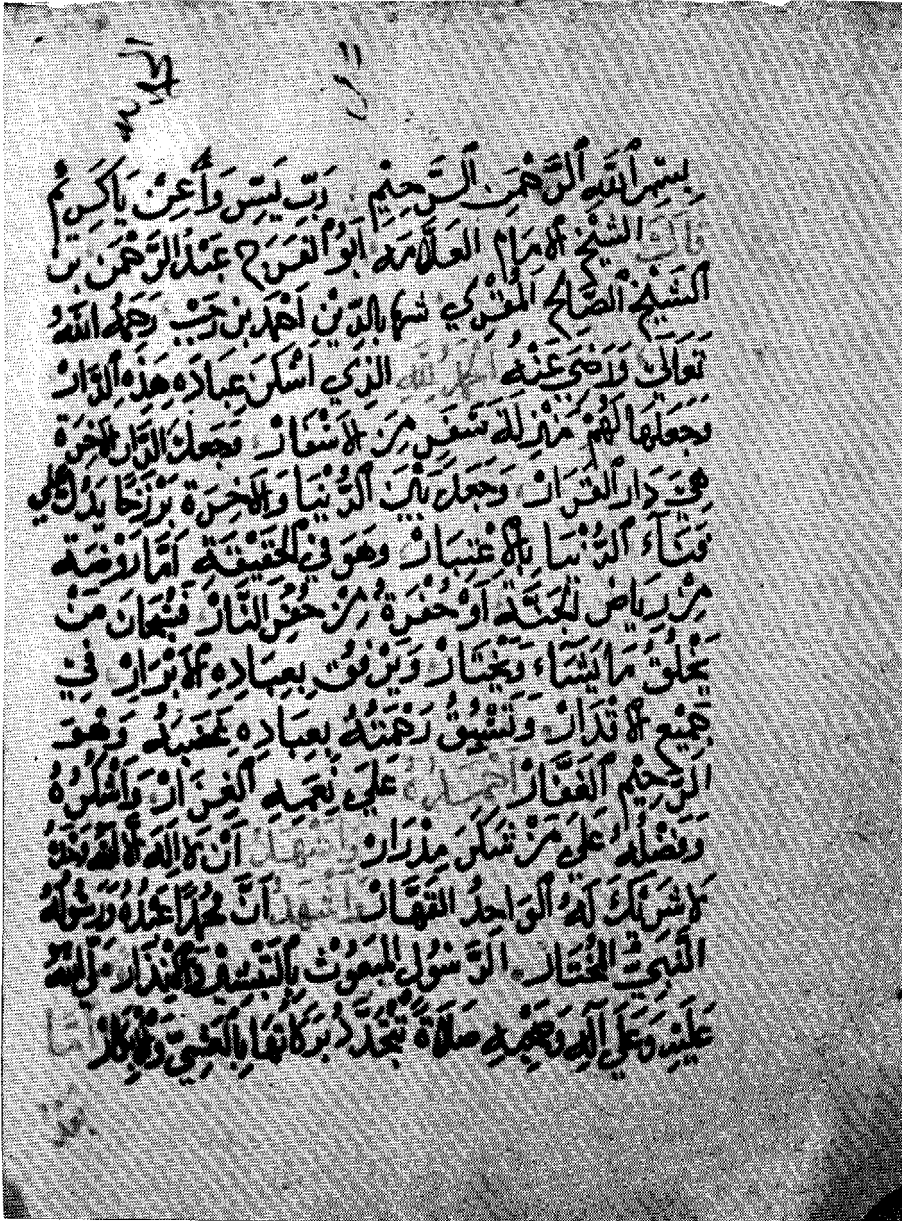 بِسْمِ اللَّهِ الرَّحْمَنِ الرَّحِيمِ رَبِّ يَسِّر وَأَعِنْ يَا كَرِيمُ
قَالَ الشَّيْخُ الامَامُ العَلَّامَه أَبُو الفَرَجِ عَبْدُ الرَّحْمَنِ بن
الشَّيْخِ الصَّالِحِ المُقْرِي شهاب الدِّينِ احْمَدَ بْنِ رَجَبْ رَحِمَهُ اللَّهُ
تَعَالَى وَرَضِيَ عَنْهُ الحَمْدُ لِلَّهِ الذِي اسْكَنَ عِبَادَه هَذِهِ الدَّارْ
وَجَعَلَهَا لَهُمْ مَنْزِلَةَ سَفَرٍ مِنَ الاسْفَارْ وَجَعَلَ الدَّارَ الاخِرَةَ
هِيَ دَارُ القَرَارْ وَجَعَلَ بَيْنَ الدُّنْيَا وَالاخِرَة بَرْزَخًا يَدُلُّ عَلي
فَنَآءِ الدُّنْيَا بِالاعْتِبَارْ وَهوَ فِي الحَقِيقَةِ امَّا رَوْضَة
مِنْ رِيَاضِ الجَنَّة أوْ حُفْرَةٌ مِنْ حُفَرِ النَّارْ فَسُبْحَانَ مَنْ
يَخْلُقُ مَا يَشَاء وَيَخْتَارْ وَيَرْفُقُ بِعِبَادِهِ الابْرَارِ فِي
جَمِيعِ الاقْدَارْ وَتَسْبِقُ رَحْمَتُهُ بِعِبَادِهِ غَضَبَهُ وَهُوَ
الرَّحِيمُ الغَفَّارْ أَحْمَدُهُ عَلَى نِعَمِهِ الغِزَارْ وَأَشْكُرُهُ
وَفَضْلُهُ عَلَى مَنْ شَكَرَ مِدْرَارْ وَأَشْهَدُ أَنْ لا إلَهَ الا اللَّهُ وَحْدَهُ
لا شَرِيكَ لَهُ الوَاحِدُ القَهَّارْ وَأَشْهَدُ أَنَّ مُحَمَّدًا عَبْدُهُ وَرَسُولُهُ
النَّبِيُّ المُخْتَار الرَّسُولُ المَبعُوثُ بِالتَّبْشِيرِ وَالإِنْذَار صَلَّى اللَّهُ
عَلَيْهِ وَعَلَى آلِهِ وَصَحْبِهِ صَلَاةً تَتَجَدَّدُ بَرَكَاتُهَا بِالعَشِيِّ وَالإِبْكَارْ أَمَّا
بعد